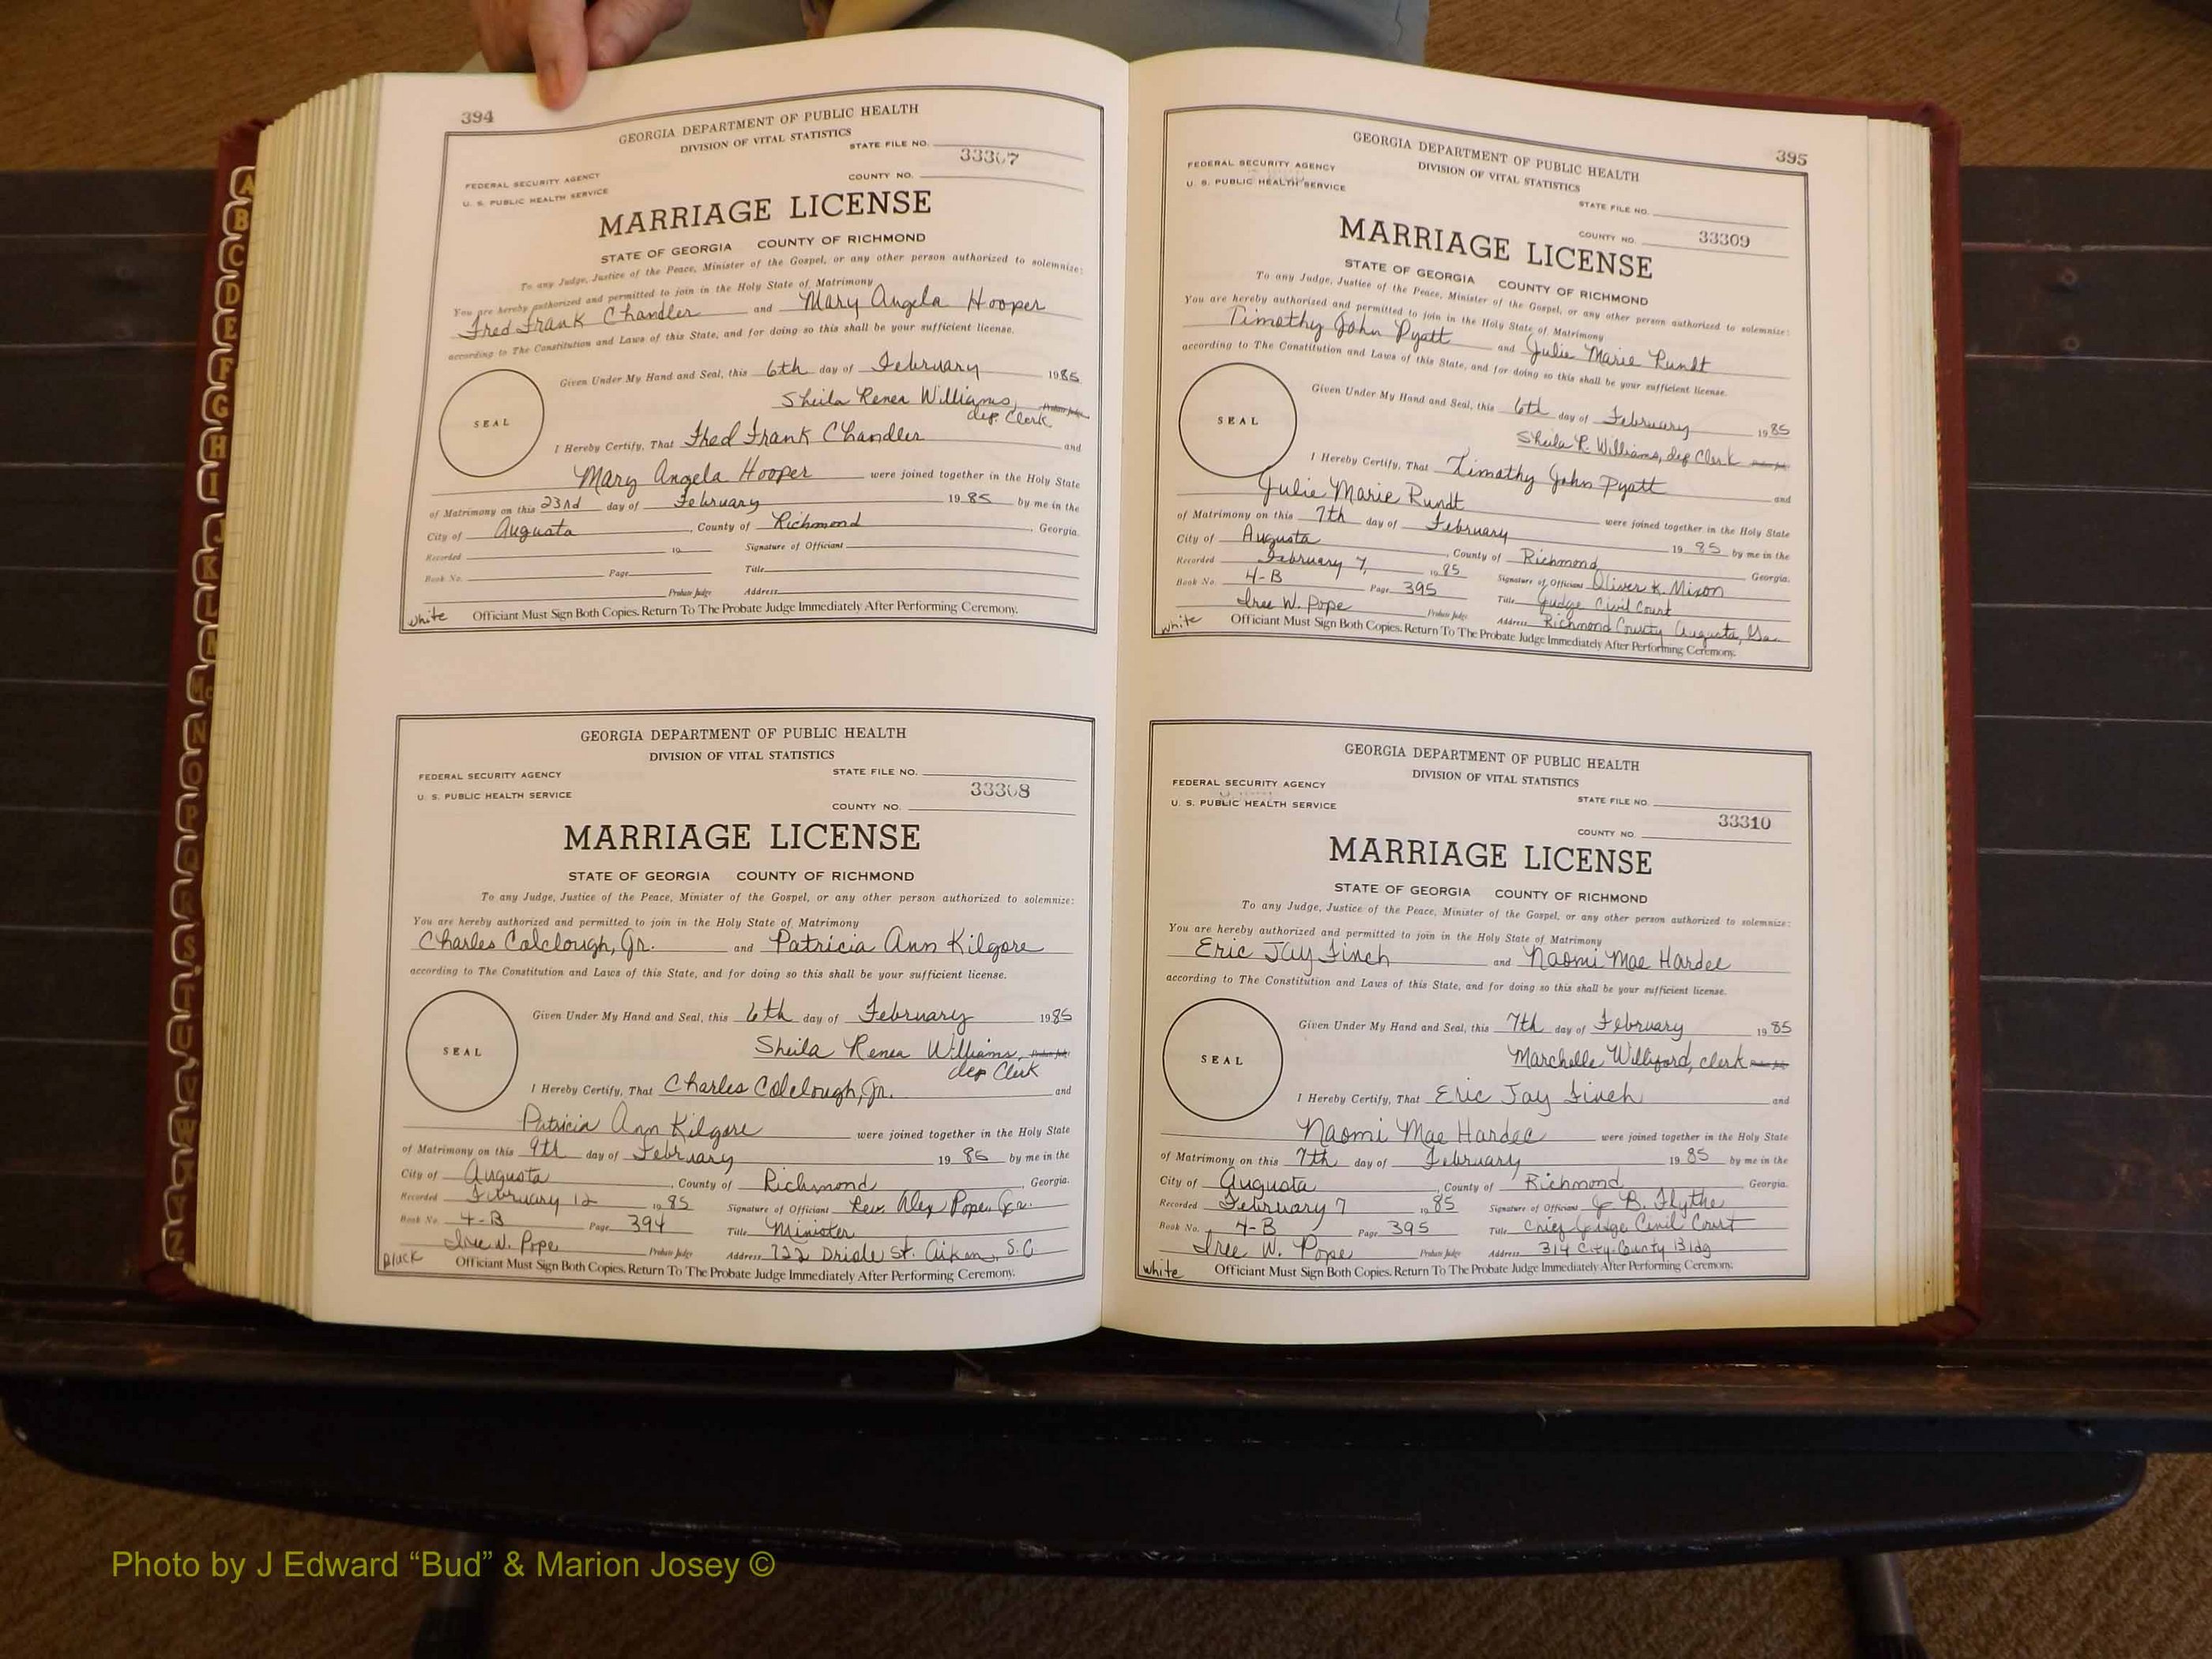 394
GEORGIA DEPARTMENT OF PUBLIC HEALTH
DIVISION OF VITAL STATISTICS
STATE FILE NO.
33307
FEDERAL SECURITY AGENCY
COUNTY NO.
U. S. PUBLIC HEALTH SERVICE
MARRIAGE LICENSE
STATE OF GEORGIA COUNTY OF RICHMOND
To any Judge, Justice of the Peace, Minister of the Gospel, or any other person authorized to solemnize:
You are hereby authorized and permitted to join in the Holy State of Matrimony
Fred Frank Chandler and Mary Angela Hooper
according to The Constitution and Laws of this State, and for doing so this shall be your sufficient license.
Given Under My Hand and Seal, this 6th day of February 1985
Sheila Renea Williams, Probate Judge
dep. Clerk
SEAL
I Hereby Certify, That Fred Frank Chandler and
Mary Angela Hooper were joined together in the Holy State
of Matrimony on this 23rd day of February 1985 by me in the
City of Augusta, County of Richmond, Georgia.
Recorded 19 Signature of Officiant
Book No. Page Title
Probate Judge Address
white Officiant Must Sign Both Copies. Return To The Probate Judge Immediately After Performing Ceremony.
GEORGIA DEPARTMENT OF PUBLIC HEALTH
DIVISION OF VITAL STATISTICS
FEDERAL SECURITY AGENCY STATE FILE NO.
33308
U. S. PUBLIC HEALTH SERVICE COUNTY NO.
MARRIAGE LICENSE
STATE OF GEORGIA COUNTY OF RICHMOND
To any Judge, Justice of the Peace, Minister of the Gospel, or any other person authorized to solemnize:
You are hereby authorized and permitted to join in the Holy State of Matrimony
Charles Colclough, Jr. and Patricia Ann Kilgore
according to The Constitution and Laws of this State, and for doing so this shall be your sufficient license.
Given Under My Hand and Seal, this 6th day of February 1985
Sheila Renea Williams, Probate Judge
dep Clerk
SEAL
I Hereby Certify, That Charles Colclough, Jr. and
Patricia Ann Kilgore were joined together in the Holy State
of Matrimony on this 9th day of February 1985 by me in the
City of Augusta, County of Richmond, Georgia.
Recorded February 12 1985 Signature of Officiant Rev. Alex Pope, Jr.
Book No. 4-B Page 394 Title Minister
W. Pope Probate Judge Address 722 St. Aiken, S.C
black Officiant Must Sign Both Copies. Return To The Probate Judge Immediately After Performing Ceremony.
395
GEORGIA DEPARTMENT OF PUBLIC HEALTH
DIVISION OF VITAL STATISTICS
FEDERAL SECURITY AGENCY
U. S. PUBLIC HEALTH SERVICE
STATE FILE NO.
COUNTY NO. 33309
MARRIAGE LICENSE
STATE OF GEORGIA COUNTY OF RICHMOND
To any Judge, Justice of the Peace, Minister of the Gospel, or any other person authorized to solemnize:
You are hereby authorized and permitted to join in the Holy State of Matrimony
Timothy John Pyatt and Julie Marie Rundt
according to The Constitution and Laws of this State, and for doing so this shall be your sufficient license.
Given Under My Hand and Seal, this 6th day of February 1985
Sheila R. Williams, dep Clerk
SEAL
I Hereby Certify, That Timothy John Pyatt and
Julie Marie Rundt were joined together in the Holy State
of Matrimony on this 7th day of February 1985 by me in the
City of Augusta, County of Richmond, Georgia.
Recorded February 7, 1985 Signature of Officiant Oliver K. Mixon
Book No. 4-B Page 395 Title Judge Civil Court
W. Pope Probate Judge Address Richmond County Augusta, Ga.
white Officiant Must Sign Both Copies. Return To The Probate Judge Immediately After Performing Ceremony.
GEORGIA DEPARTMENT OF PUBLIC HEALTH
DIVISION OF VITAL STATISTICS
FEDERAL SECURITY AGENCY
U. S. PUBLIC HEALTH SERVICE STATE FILE NO.
33310
COUNTY NO.
MARRIAGE LICENSE
STATE OF GEORGIA COUNTY OF RICHMOND
To any Judge, Justice of the Peace, Minister of the Gospel, or any other person authorized to solemnize:
You are hereby authorized and permitted to join in the Holy State of Matrimony
Eric Jay Finch and Naomi Mae Hardee
according to The Constitution and Laws of this State, and for doing so this shall be your sufficient license.
Given Under My Hand and Seal, this 7th day of February 1985
Marchelle Williford, clerk
SEAL
I Hereby Certify, That Eric Jay Finch and
Naomi Mae Hardee were joined together in the Holy State
of Matrimony on this 7th day of February 1985 by me in the
City of Augusta, County of Richmond Georgia.
Recorded February 7 1985 Signature of Officiant J B. Flythe
Book No. 4-B Page 395 Title Chief Judge Civil Court
W. Pope Probate Judge Address 314 City-County Bldg
white Officiant Must Sign Both Copies. Return To The Probate Judge Immediately After Performing Ceremony.
A
B
C
D
E
F
G
H
I
J
K
L
M
Mc
N
O
P
Q
R
S
T
U
V
W
Y
Z
Photo by J Edward “Bud” & Marion Josey ©